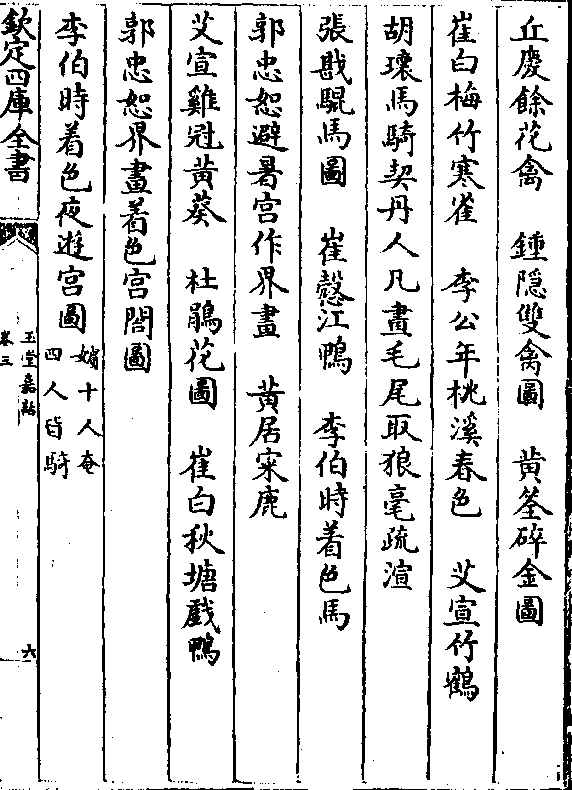 丘慶餘花禽　鍾隠雙禽圖　黄筌碎金圖
崔白梅竹寒雀　李公年桃溪春色　艾宣竹鶴
胡瓌馬騎契丹人凡畫毛尾取狼毫疏渲
張戡騉馬圖　崔慤江鴨　李伯時着色馬
郭忠恕避暑宫作界畫　黄居寀鹿
艾宣雞冠黄葵　杜鵑花圖　崔白秋塘戲鴨
郭忠恕界畫着色宫閣圖
李伯時着色夜遊宫圖
嬪十人奄
四人皆騎
欽定四庫全書
玉堂嘉話
卷三
六